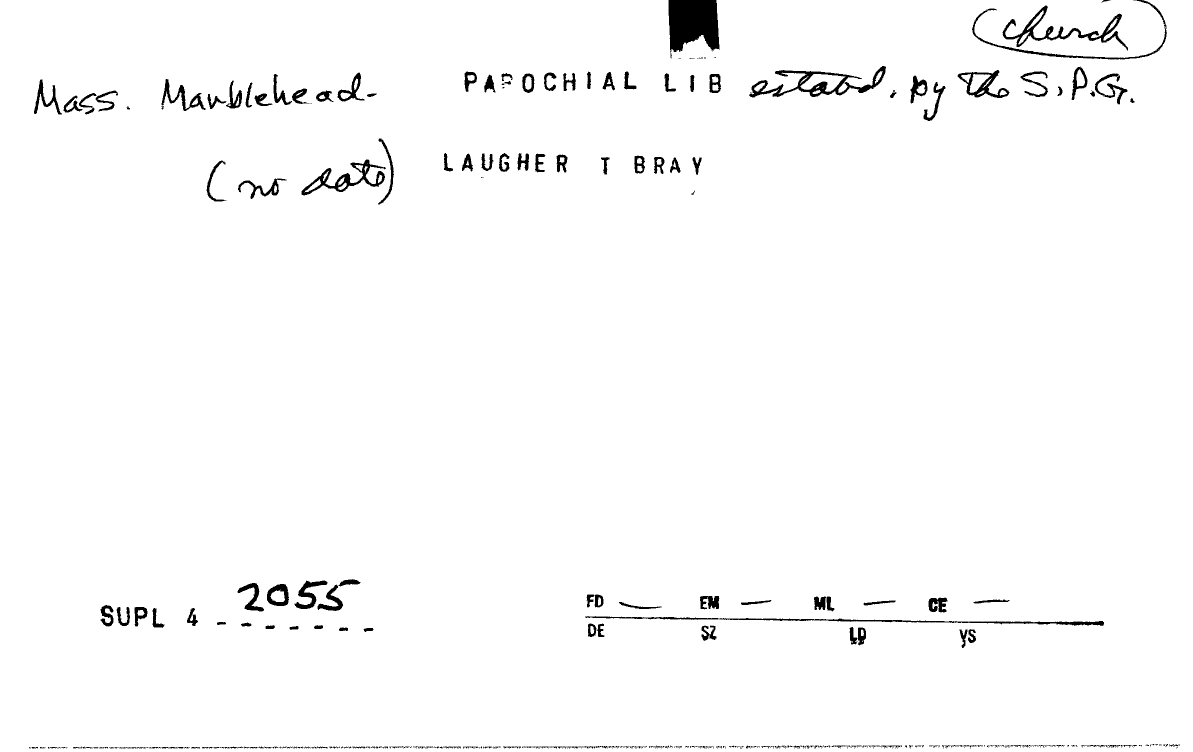 church
Mass. Marblehead- PAROCHIAL LIB estabd. by the S.P.G.
(no date) LAUGHER T BRAY
SUPL 4 2055
FD — EM — ML — CE —
DE SZ LD YS